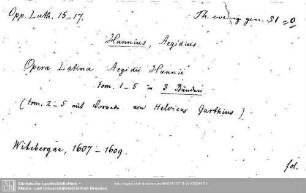 Opp. Luth. 15-17. Th. evang. gen. 81 =0
Hunnius, Aegidius
Opera Latina Aegidii Hunnii
tom. 1-5 in 3 Bänden
(tom. 2-5 mit Vorrede von Helvicus Garthius)
Witebergae, 1607-1609.
fol.
Sächsische Landesbibliothek -
Staats- und Universitätsbibliothek Dresden